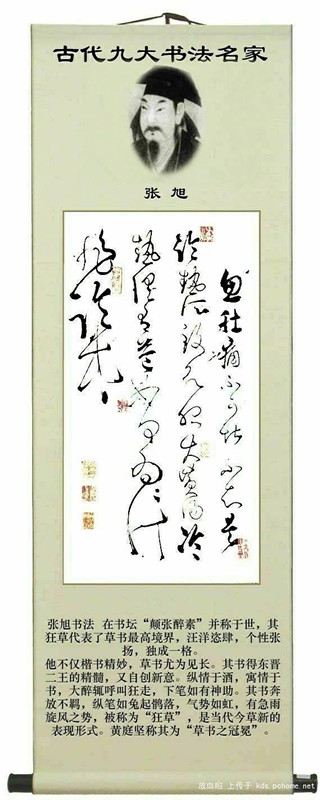 古代九大书法名家
张 旭
忽肚痛不可堪不知是
冷熱所致欲服大黄湯冷
熱俱有益如何為計
非臨床
张旭书法 在书坛“颠张醉素”并称于世，其
狂草代表了草书最高境界，汪洋恣肆，个性张
扬，独成一格。
他不仅楷书精妙，草书尤为见长。其书得东晋
二王的精髓，又自创新意。纵情于酒，寓情于
书，大醉辄呼叫狂走，下笔如有神助。其书奔
放不羁，纵笔如兔起鹘落，气势如虹，有急雨
旋风之势，被称为“狂草”，是当代今草新的
表现形式。黄庭坚称其为“草书之冠冕”。
上传于 kds.pchome.net